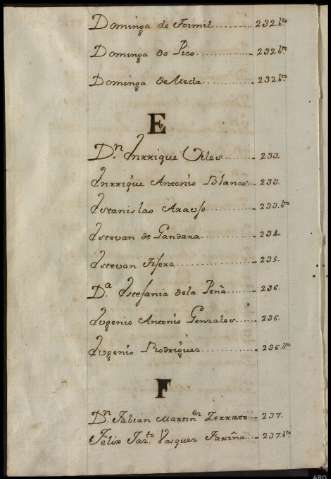 Dominga de Formil ........ 232.bto
Dominga do Pico ........ 232.bto
Dominga de Aveda ........ 232.bto
E
Dn. Inrrique Ules ........ 233.
Inrrique Antonio Blanco ........ 233.
Istanislao Araujo ........ 233.bto
Istevan de Gandara ........ 234.
Istevan ........ 235.
Da. Istefania dela Peña ........ 236.
Iugenio Antonio Gonzales ........ 236.
Iugenio Rodrigues ........ 236.bto
F
Dn. Fabian Martin ........ 237.
Felix Vasques Fariña ........ 237.bto